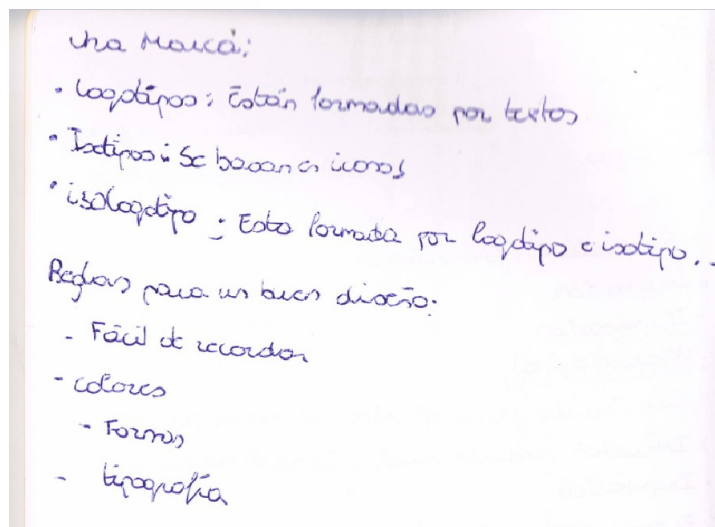 una Marca:
• Logotipos: Están formadas por textos
• Isotipos: Se basan en iconos
• isologotipo: Esta formada por logotipo e isotipo..
Reglas para un buen diseño:
- Fácil de recordar
- colores
- Formas
- tipografía